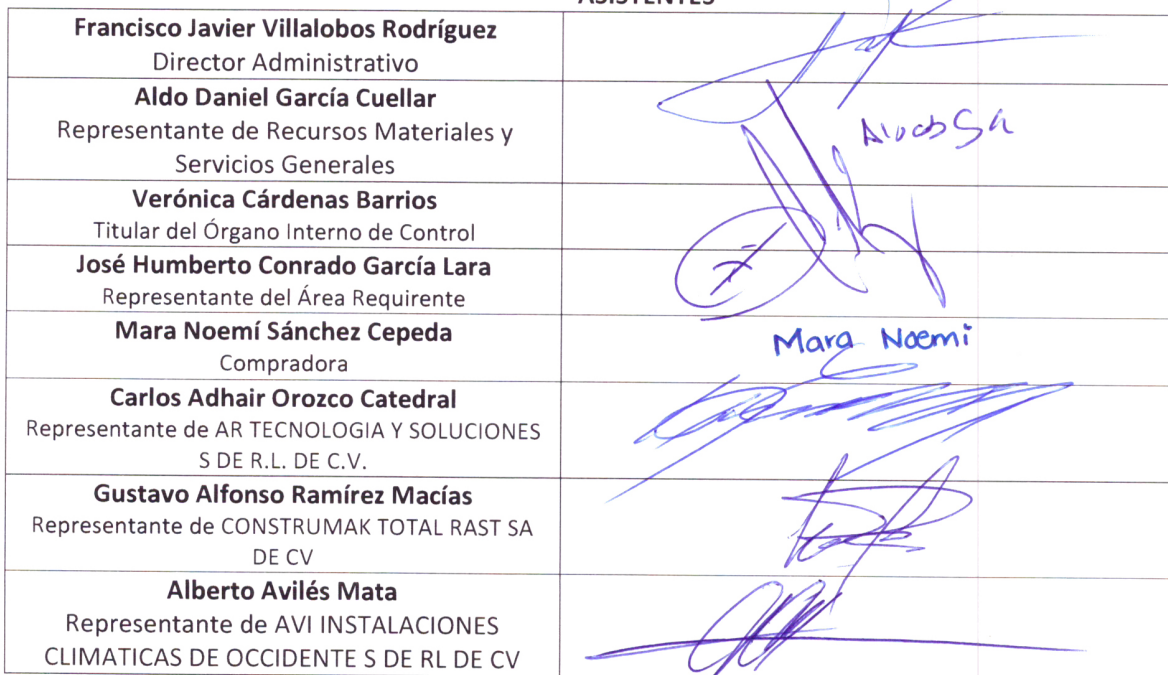 ASISTENTES
Francisco Javier Villalobos Rodríguez
Director Administrativo
Aldo Daniel García Cuellar
Representante de Recursos Materiales y
Servicios Generales
Verónica Cárdenas Barrios
Titular del Órgano Interno de Control
José Humberto Conrado García Lara
Representante del Área Requirente
Mara Noemí Sánchez Cepeda
Compradora
Mara Noemi
Carlos Adhair Orozco Catedral
Representante de AR TECNOLOGIA Y SOLUCIONES
S DE R.L. DE C.V.
Gustavo Alfonso Ramírez Macías
Representante de CONSTRUMAK TOTAL RAST SA
DE CV
Alberto Avilés Mata
Representante de AVI INSTALACIONES
CLIMATICAS DE OCCIDENTE S DE RL DE CV